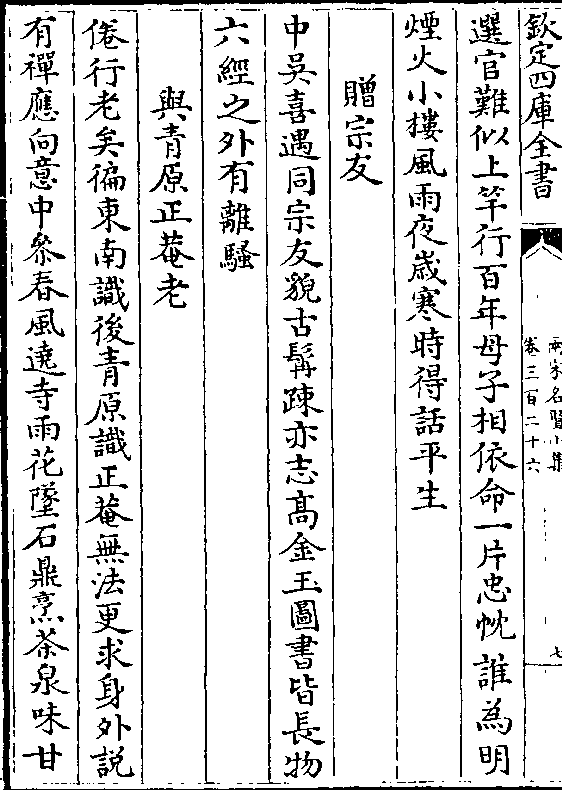 欽定四庫全書
兩宋名賢小集
卷三百二十六
七
選官難似上竿行百年母子相依命一片忠忱誰為明
煙火小樓風雨夜歲寒時得話平生
贈宗友
中吳喜遇同宗友貌古髯踈亦志高金玉圖書皆長物
六經之外有離騷
與青原正菴老
倦行老矣徧東南識後青原識正菴無法更求身外説
有禪應向意中叅春風遶寺雨花墜石鼎烹茶泉味甘